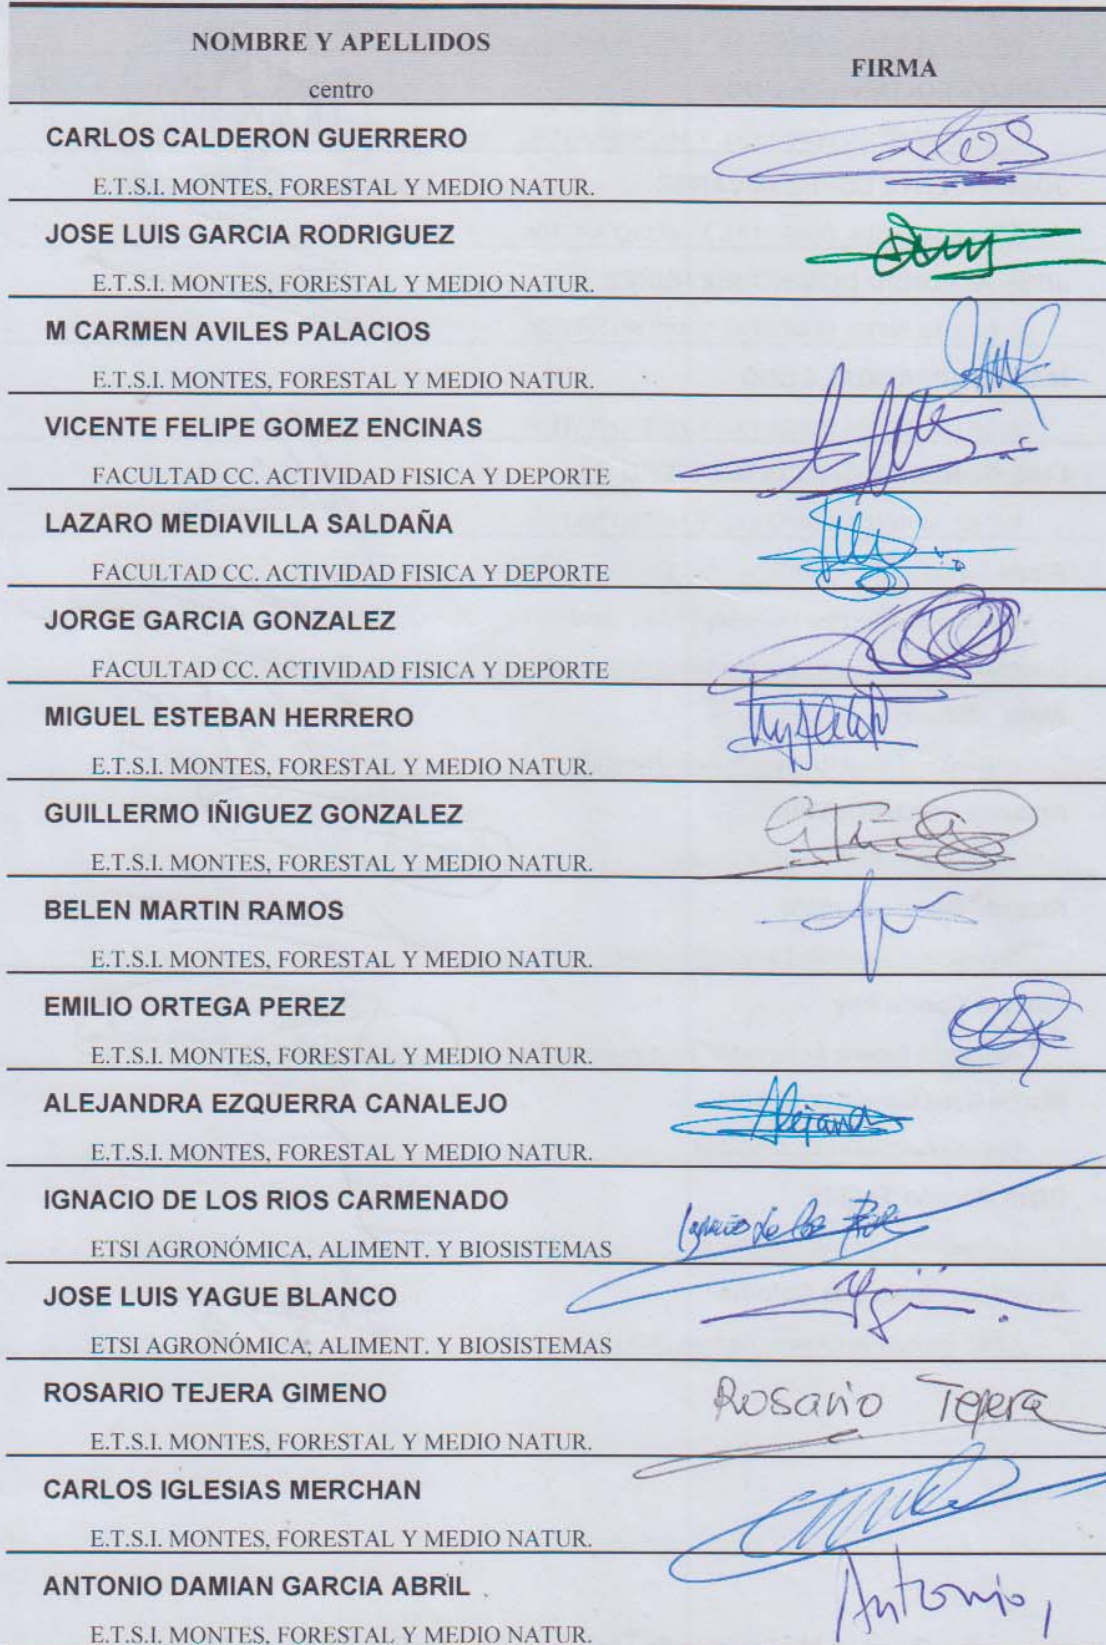 NOMBRE Y APELLIDOS
FIRMA
centro
CARLOS CALDERON GUERRERO
Carlos
E.T.S.I. MONTES, FORESTAL Y MEDIO NATUR.
JOSE LUIS GARCIA RODRIGUEZ
E.T.S.I. MONTES, FORESTAL Y MEDIO NATUR.
M CARMEN AVILES PALACIOS
E.T.S.I. MONTES, FORESTAL Y MEDIO NATUR.
VICENTE FELIPE GOMEZ ENCINAS
FACULTAD CC. ACTIVIDAD FISICA Y DEPORTE
LAZARO MEDIAVILLA SALDAÑA
FACULTAD CC. ACTIVIDAD FISICA Y DEPORTE
JORGE GARCIA GONZALEZ
FACULTAD CC. ACTIVIDAD FISICA Y DEPORTE
MIGUEL ESTEBAN HERRERO
E.T.S.I. MONTES, FORESTAL Y MEDIO NATUR.
GUILLERMO IÑIGUEZ GONZALEZ
E.T.S.I. MONTES, FORESTAL Y MEDIO NATUR.
BELEN MARTIN RAMOS
E.T.S.I. MONTES, FORESTAL Y MEDIO NATUR.
EMILIO ORTEGA PEREZ
E.T.S.I. MONTES, FORESTAL Y MEDIO NATUR.
ALEJANDRA EZQUERRA CANALEJO
Alejandra
E.T.S.I. MONTES, FORESTAL Y MEDIO NATUR.
IGNACIO DE LOS RIOS CARMENADO
Ignacio de los Rios
ETSI AGRONÓMICA, ALIMENT. Y BIOSISTEMAS
JOSE LUIS YAGUE BLANCO
ETSI AGRONÓMICA, ALIMENT. Y BIOSISTEMAS
ROSARIO TEJERA GIMENO
Rosario Tejera
E.T.S.I. MONTES, FORESTAL Y MEDIO NATUR.
CARLOS IGLESIAS MERCHAN
E.T.S.I. MONTES, FORESTAL Y MEDIO NATUR.
ANTONIO DAMIAN GARCIA ABRIL
Antonio,
E.T.S.I. MONTES, FORESTAL Y MEDIO NATUR.